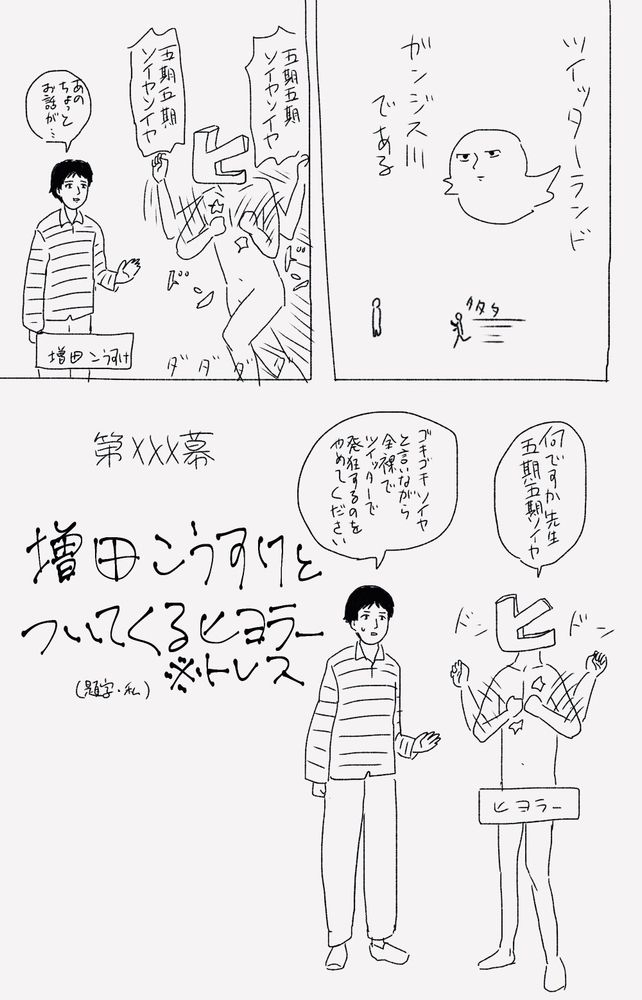 ツイッターランド
ガンジス川
である
タタタ
五期五期
ソイヤソイヤ
五期五期
ソイヤソイヤ
ヒ
あの
ちょっと
お話が…
ド
ド
ダダダダ
増田こうすけ
何ですか先生
五期五期ソイヤ
ゴキゴキソイヤ
と言いながら
全裸で
ツイッターで
発狂するのを
やめてください
第XXX幕
増田こうすけと
ついてくるヒヨラー
※トレス
(題字・私)
ヒ
ドン
ドン
ヒヨラー